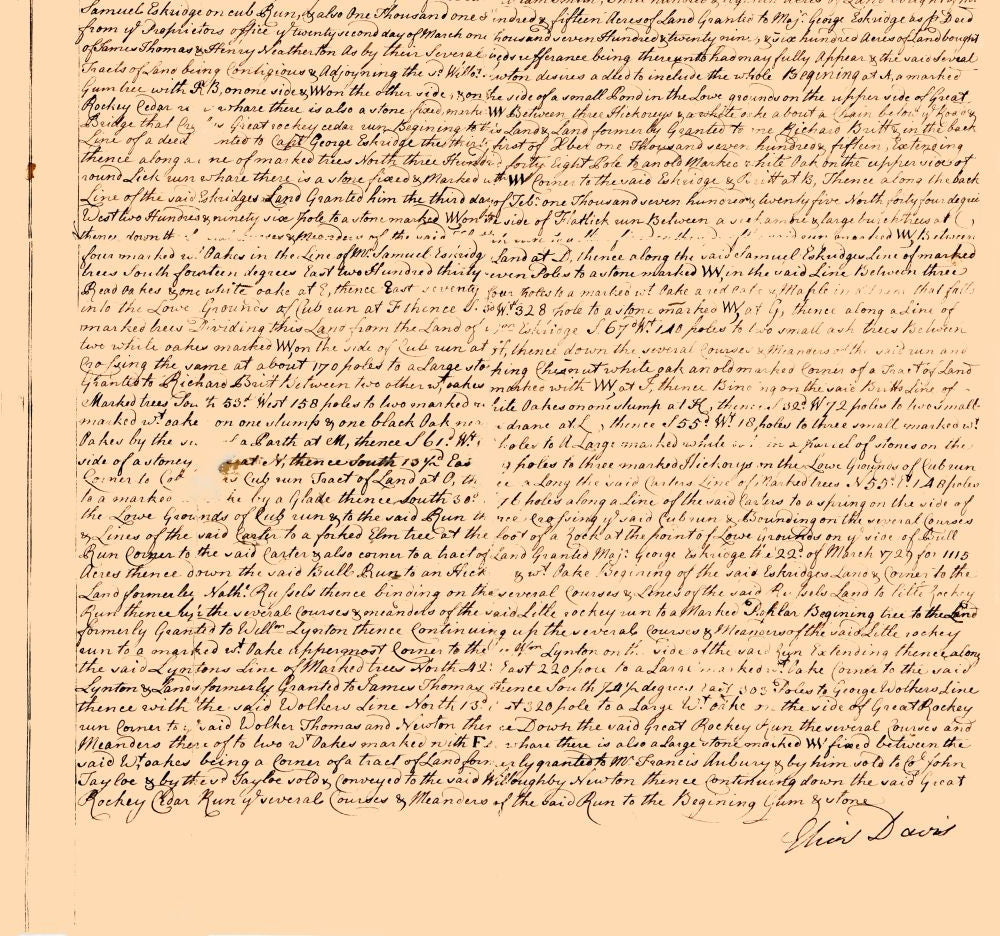 Samuel Eskridge on cub Run, & also One Thousand one Hundred & fifteen Acres of Land Granted to Maj: George Eskridge as pr Deed
from ye Proprietors office ye twenty second day of March one thousand seven Hundred & twenty nine, & six hundred Acres of Land bought
of James Thomas & Henry Neatherton As by their Several Deeds refferance being thereunto had may fully Appear & the said several
Tracts of Land being Contigious & Adjoyning the sd Willo: Newton desires added to include the whole Begining at A, a marked
Gum tree with F.B, on one side & W on the other side, & on the side of a small Pond in the Low grounds on the upper side of Great
Rockey Cedar whare there is also a stone fixed marked W Between three Hickoreys & a white oake about a Chain below ye Road &
Bridge that Great rockey cedar run Begining to this Land & Land formerly Granted to one Richard Britt & in the back
Line of a deed Granted to Capt George Eskridge this thirty first of Xber one Thousand seven hundred & fifteen, Extending
thence along a Line of marked trees North three Hundred forty Eight Pole to an old Marked white Oak on the upper side of
round Lick run whare there is a stone fixed & Marked with W Corner to the said Eskridge & Britt at B, Thence along the back
Line of the said Eskridges Land Granted him the third day of Feb: one Thousand seven hundred & twenty five North forty four degrees
West two Hundred & ninety six pole to a stone marked W on the side of Flatlick run Between a & large burch trees at C,
thence down the Meanders of the said marked W Between
four marked wt Oakes in the Line of Mr Samuel Eskridges Land at D, thence along the said Samuel Eskridges Line of marked
trees South fourteen degrees East two Hundred thirty seven Poles to a stone marked W, in the said Line Between three
Read Oakes & one white oake at E, thence East seventy four poles to a marked wt Oake a red Oake & Maple in a that falls
into the Low Grounds of Cub run at F thence S. 30 Wt 328 pole to a stone marked W at G, thence along a Line of
marked trees Dividing this Land from the Land of Eskridge S. 67° Wt 140 poles to two small ash trees Between
two white oakes marked W, on the side of Cub run at H, thence down the several Courses & Meanders of the said run and
Crossing the same at about 170 poles to a large stooping Chesnut white oak an old marked Corner of a Tract of Land
Granted to Richard Britt Between two other wt oakes marked with W at I, thence Binding on the said Britts Line of
Marked trees South 53d West 158 poles to two marked white Oakes on one stump at K, thence S 32d W 72 poles to two small
marked wt oake on one stump & one black Oak near a drane at L, thence S 55° Wt 18 poles to three small marked wt
Oakes by the a Parth at M, thence S 61° Wt poles to A Large marked white in a parcel of stones on the
side of a stoney at N, thence South 13½d East poles to three marked Hickorys on the Low Grounds of Cub run
Corner to Cub run Tract of Land at O, thence along the said Carters Line of Marked trees N 55° Et 148 poles
to a marked by a Glade thence South 30° poles along a Line of the said Carters to a spring on the side of
the Low Grounds of Cub run & to the said Run thence Crossing ye said Cub run & Bounding on the several Courses
& Lines of the said Carter to a forked Elm tree at the foot of a Rock at the point of Low grounds on ye side of Bull
Run Corner to the said Carter & also corner to a tract of Land Granted Maj: George Eskridge the 22d of March 1729 for 1115
Acres thence down the said Bull Run to an Hick & wt Oake Begining of the said Eskridges Land & Corner to the
Land formerly Nathl: Russels thence binding on the several Courses & Lines of the said Russels Land to Little Rockey
Run thence up the several Courses & meanders of the said Little rockey run to a Marked Poplar Begining tree to the Land
formerly Granted to Willm Lynton thence Continuing up the several Courses & Meanders of the said Little rockey
run to a marked wt Oake uppermost Corner to the Wm Lynton on the side of the said Run Extending thence along
the said Lyntons Line of Marked trees North 42° East 220 pole to a Large marked wt Oake Corner to the said
Lynton & Lands formerly Granted to James Thomas, thence South 74½ degrees East 303 Poles to George Wolkers Line
thence with the said Wolkers Line North 13° 320 pole to a Large Wt oake on the side of Great Rockey
run Corner to ye said Wolker Thomas and Newton thence Down the said Great Rockey Run the several Courses and
Meanders there of to two wt Oakes marked with F whare there is also a Large stone marked W fixed between the
said Wt oakes being a Corner of a tract of Land formerly granted to Mr Francis Aubury & by him sold to Col John
Tayloe & by the sd Tayloe sold & Conveyed to the said Willoughby Newton thence Continuing down the said Great
Rockey Cedar Run ye several Courses & Meanders of the said Run to the Begining Gum & stone
Davis